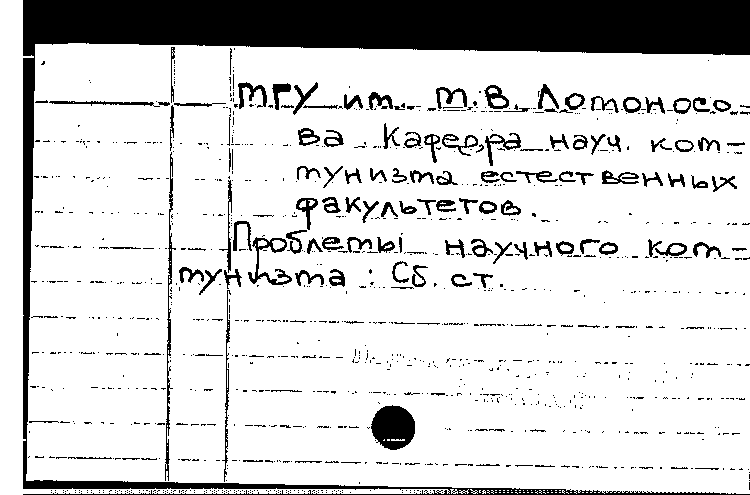 МГУ им. М.В. Ломоносо-
ва. Кафедра науч. ком-
мунизма естественных
факультетов.
Проблемы научного ком-
мунизма : Сб. ст.